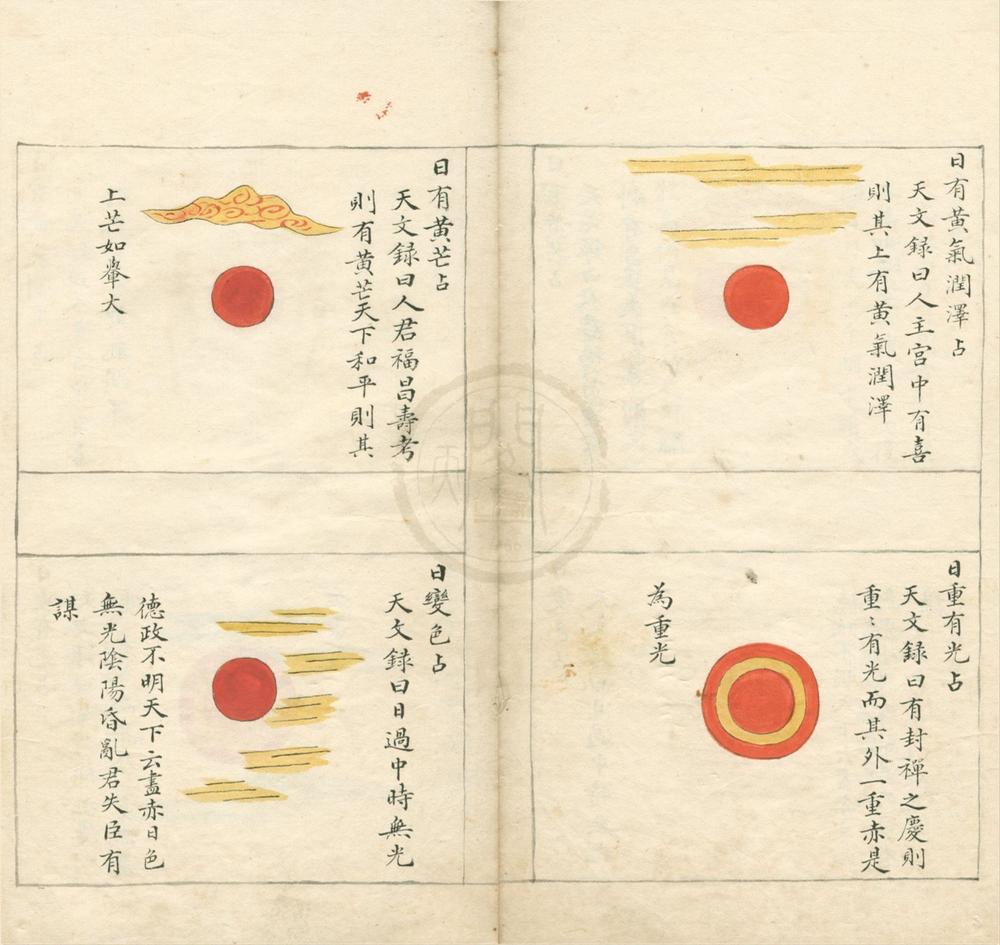 日有黃氣潤澤占
天文録曰人主宮中有喜
則其上有黃氣潤澤
日重有光占
天文録曰有封禪之慶則
重〻有光而其外一重赤是
為重光
日有黃芒占
天文録曰人君福昌壽考
則有黃芒天下和平則其
上芒如輂大
日變色占
天文録曰日過中時無光
德政不明天下云盡赤日色
無光陰陽昏亂君失臣有
謀